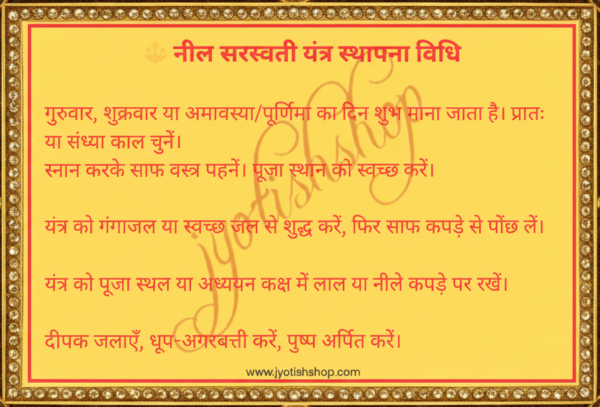 नील सरस्वती यंत्र स्थापना विधि
गुरुवार, शुक्रवार या अमावस्या/पूर्णिमा का दिन शुभ माना जाता है। प्रातः
या संध्या काल चुनें।
स्नान करके साफ वस्त्र पहनें। पूजा स्थान को स्वच्छ करें।
यंत्र को गंगाजल या स्वच्छ जल से शुद्ध करें, फिर साफ कपड़े से पोंछ लें।
यंत्र को पूजा स्थल या अध्ययन कक्ष में लाल या नीले कपड़े पर रखें।
दीपक जलाएँ, धूप-अगरबत्ती करें, पुष्प अर्पित करें।
jyotishshop
www.jyotishshop.com